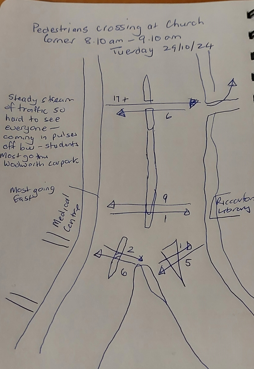 Pedestrians crossing at Church
Corner 8.10am - 9.10am
Tuesday 29/10/24
Steady stream
of traffic so
hard to see
everyone -
coming in pulses
off bus - students
Most go thru
carpark
17+
6
Most going
East
Medical
Centre
9
1
Riccarton
Library
2
6
1
5